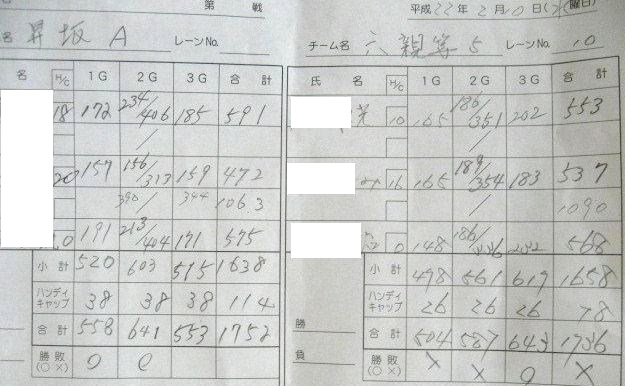 第 戦
平成22年2月10日( 曜日)
名 昇坂 A レーンNo.
チーム名 六親等5 レーンNo. 10
名 H/C 1G 2G 3G 合計
18 172 234/406 185 591
/
20 157 156/313 159 472
390/ 344 1063
0 191 213/404 171 575
小計 520 603 515 1638
ハンディキャップ 38 38 38 114
合計 558 641 553 1752
勝敗(○×) ○ ○
氏名 H/C 1G 2G 3G 合計
10 165 186/351 202 553
/
16 165 189/354 183 537
/ 1090
0 148 186/ 568
小計 478 561 619 1658
ハンディキャップ 26 26 26 78
合計 504 587 643 1736
勝敗(○×) × × ○ ×
勝
負